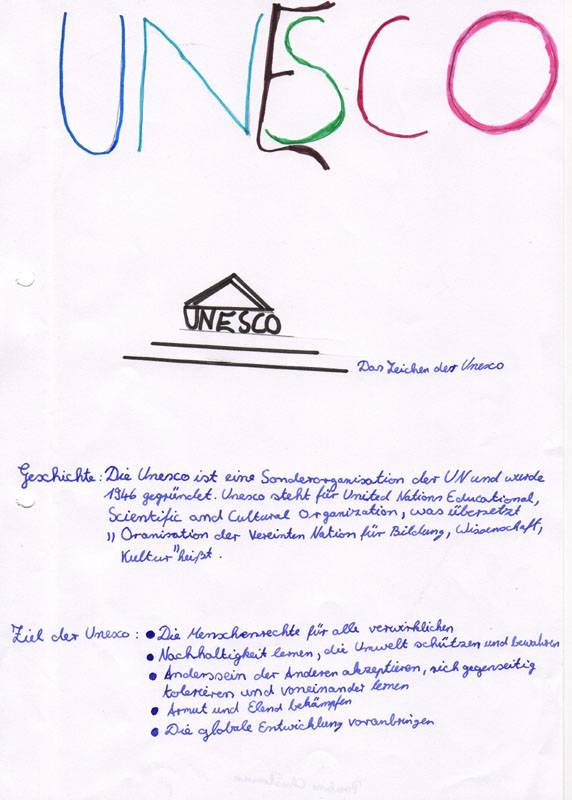 UNESCO
UNESCO
Das Zeichen der Unesco
Geschichte: Die Unesco ist eine Sonderorganisation der UN und wurde
1946 gegründet. Unesco steht für United Nations Educational,
Scientific and Cultural Organization, was übersetzt
„Oranisation der Vereinten Nation für Bildung, Wissenschaft,
Kultur" heißt.
Ziel der Unesco: • Die Menschenrechte für alle verwirklichen
• Nachhaltigkeit lernen, die Umwelt schützen und bewahren
• Anderssein der Anderen akzeptieren, sich gegenseitig
tolerieren und voneinander lernen
• Armut und Elend bekämpfen
• Die globale Entwicklung voranbringen